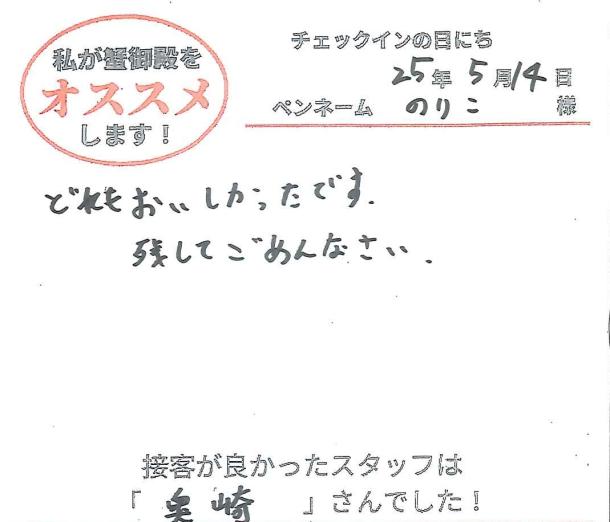 私が蟹御殿を
オススメ
します!
チェックインの日にち
25年5月14日
ペンネーム のりこ 様
どれもおいしかったです.
残してごめんなさい.
接客が良かったスタッフは
「 奥崎 」さんでした!